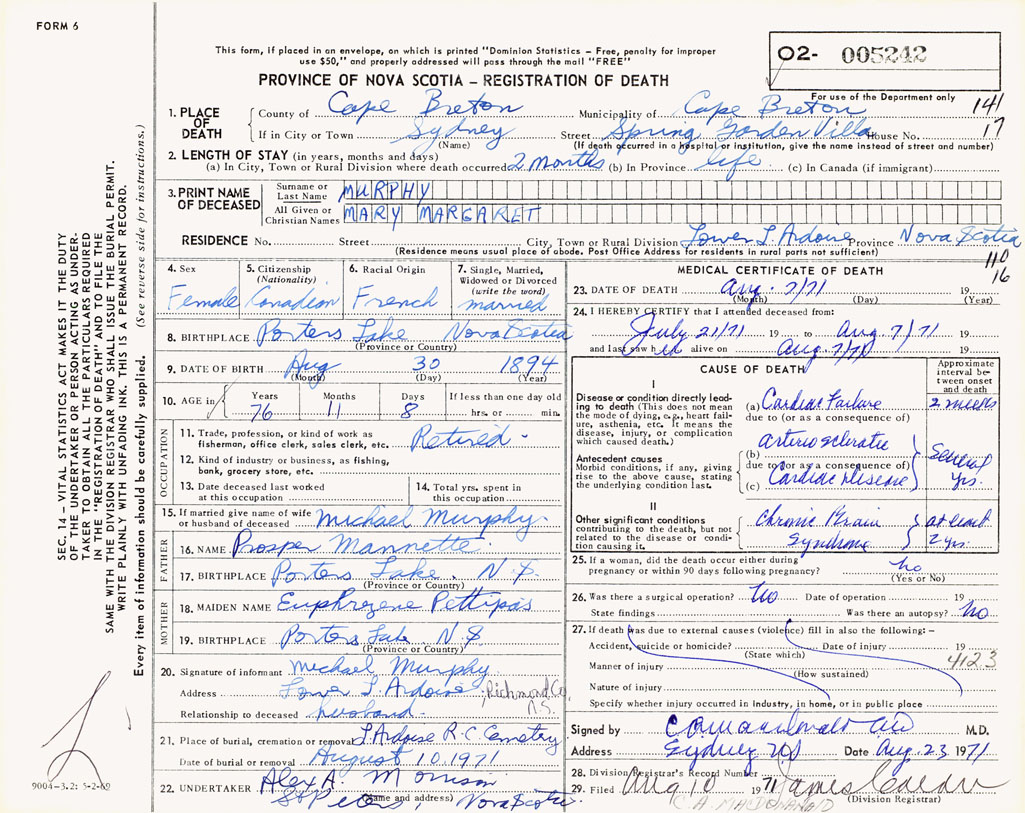 FORM 6
This form, if placed in an envelope, on which is printed "Dominion Statistics – Free, penalty for improper
use $50," and properly addressed will pass through the mail "FREE"
O2- 005242
For use of the Department only
PROVINCE OF NOVA SCOTIA – REGISTRATION OF DEATH
141
17
1. PLACE OF DEATH County of Cape Breton Municipality of Cape Breton
If in City or Town Sydney Street Spring Garden Villa House No.
(Name) (If death occurred in a hospital or institution, give the name instead of street and number)
2. LENGTH OF STAY (in years, months and days)
(a) In City, Town or Rural Division where death occurred 2 months (b) In Province life (c) In Canada (if immigrant)
3. PRINT NAME OF DECEASED
Surname or Last Name MURPHY
All Given or Christian Names MARY MARGARET
RESIDENCE No. Street City, Town or Rural Division Lower L'Ardoise Province Nova Scotia
(Residence means usual place of abode. Post Office Address for residents in rural parts not sufficient)
110
16
4. Sex Female
5. Citizenship (Nationality) Canadian
6. Racial Origin French
7. Single, Married, Widowed or Divorced (write the word) married
8. BIRTHPLACE Porters Lake Nova Scotia
(Province or Country)
9. DATE OF BIRTH Aug 30 1894
(Month) (Day) (Year)
10. AGE in Years 76 Months 11 Days 8 If less than one day old
hrs. or min.
OCCUPATION
11. Trade, profession, or kind of work as
fisherman, office clerk, sales clerk, etc. Retired.
12. Kind of industry or business, as fishing,
bank, grocery store, etc.
13. Date deceased last worked
at this occupation
14. Total yrs. spent in
this occupation
15. If married give name of wife
or husband of deceased Michael Murphy.
FATHER
16. NAME Prosper Mannette
17. BIRTHPLACE Porters Lake. N.S.
(Province or Country)
MOTHER
18. MAIDEN NAME Euphrozene Pettipas
19. BIRTHPLACE Porters Lake N.S
(Province or Country)
20. Signature of informant Michael Murphy
Address Lower L'Ardoise, Richmond Co. N.S.
Relationship to deceased husband.
21. Place of burial, cremation or removal L'Ardoise R.C. Cemetry
Date of burial or removal August 10, 1971
22. UNDERTAKER Alex A. Morrison
(Name and address) St Peters, Nova Scotia.
MEDICAL CERTIFICATE OF DEATH
23. DATE OF DEATH Aug. 7/71 19
(Month) (Day) (Year)
24. I HEREBY CERTIFY that I attended deceased from:
July 21/71 19 to Aug 7/71 19
and last saw h alive on Aug 7/71 19
CAUSE OF DEATH
Approximate interval between onset and death
I
Disease or condition directly leading to death (This does not
mean the mode of dying, e.g., heart failure, asthenia, etc. It means the
disease, injury, or complication
which caused death.)
(a) Cardiac Failure 2 weeks
due to (or as a consequence of)
Antecedent causes
Morbid conditions, if any, giving
rise to the above cause, stating
the underlying condition last.
(b) Arteriosclerotic
due to (or as a consequence of)
(c) Cardiac Disease
Several yrs.
II
Other significant conditions
contributing to the death, but not
related to the disease or condition causing it.
Chronic Brain
Syndrome
at least 2 yrs.
25. If a woman, did the death occur either during
pregnancy or within 90 days following pregnancy? no
(Yes or No)
26. Was there a surgical operation? No Date of operation 19
State findings Was there an autopsy? No
27. If death was due to external causes (violence) fill in also the following:–
Accident, suicide or homicide? Date of injury 19
(State which)
4123
Manner of injury
(How sustained)
Nature of injury
Specify whether injury occurred in industry, in home, or in public place
Signed by M.D.
Address Sydney NS Date Aug. 23 1971
28. Division Registrar's Record Number
29. Filed Aug 10 1971 James
(Division Registrar)
C. A. MACDONALD
9004–3.2: 5-2-69
SEC. 14 – VITAL STATISTICS ACT MAKES IT THE DUTY
OF THE UNDERTAKER OR PERSON ACTING AS UNDER-
TAKER TO OBTAIN ALL THE PARTICULARS REQUIRED
IN THE "REGISTRATION OF DEATH" AND TO FILE THE
SAME WITH THE DIVISION REGISTRAR WHO SHALL ISSUE THE BURIAL PERMIT.
WRITE PLAINLY WITH UNFADING INK. THIS IS A PERMANENT RECORD.
Every item of information should be carefully supplied. (See reverse side for instructions.)